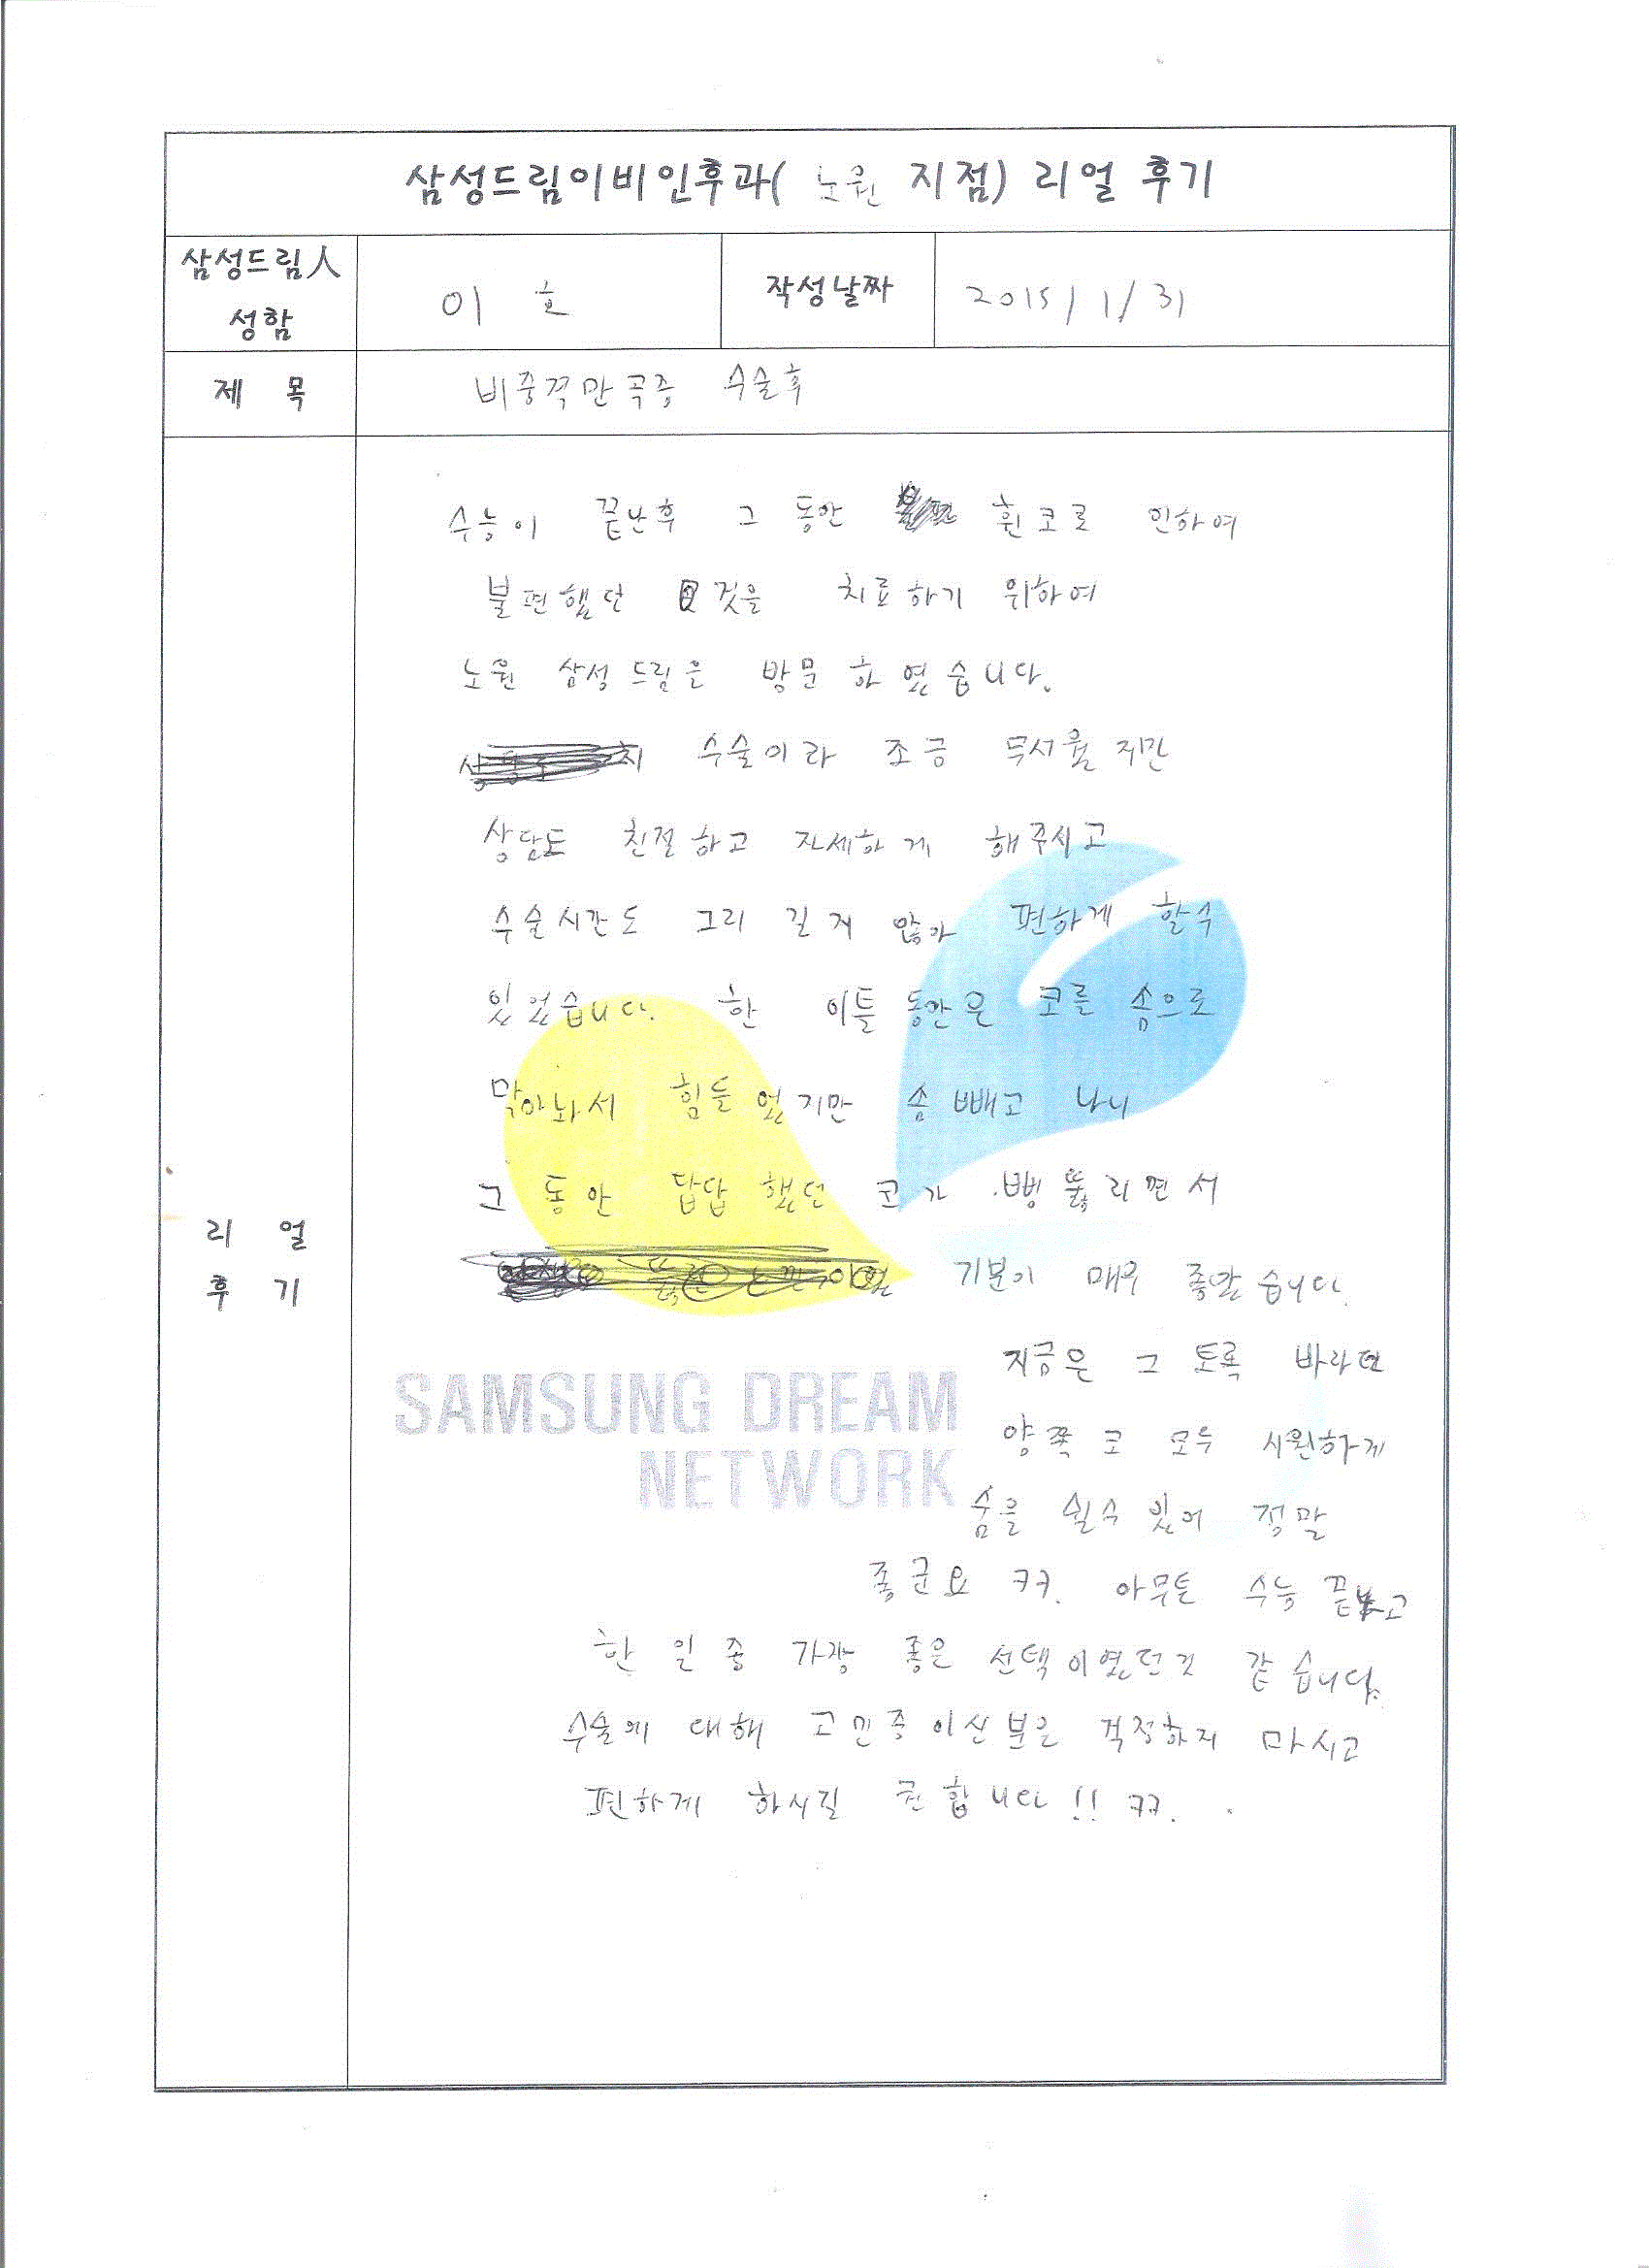 삼성드림이비인후과( 노원 지점) 리얼 후기
삼성드림人
성함
이 호
작성날짜
2015/1/31
제 목
비중격만곡증 수술후
리 얼
후 기
수능이 끝난후 그 동안 휜코로 인하여
불편했던 것을 치료하기 위하여
노원 삼성드림을 방문 하였습니다.
수술이라 조금 무서웠지만
상담도 친절하고 자세하게 해주시고
수술시간도 그리 길지 않아 편하게 할수
있었습니다. 한 이틀 동안은 코를 솜으로
막아놔서 힘들었지만 솜 빼고 나니
그 동안 답답했던 코가 뻥 뚫리면서
기분이 매우 좋았습니다.
지금은 그 토록 바라던
양쪽 코 모두 시원하게
숨을 쉴수 있어 정말
좋군요 ㅋㅋ. 아무튼 수능 끝나고
한 일 중 가장 좋은 선택이였던것 같습니다.
수술에 대해 고민중이신분은 걱정하지 마시고
편하게 하시길 권합니다!! ㅋㅋ.
SAMSUNG DREAM
NETWORK